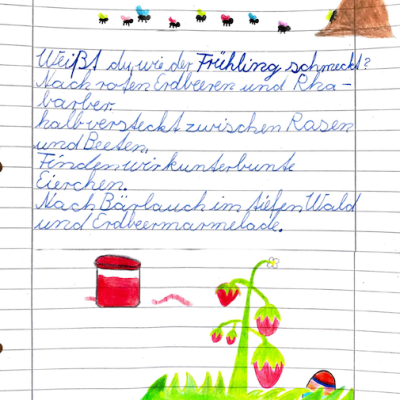 Weißt du, wie der Frühling schmeckt?
Nach roten Erdbeeren und Rha-
barber.
halb versteckt zwischen Rasen
und Beeten,
Finden wir kunterbunte
Eierchen.
Nach Bärlauch im tiefen Wald
und Erdbeermarmelade.